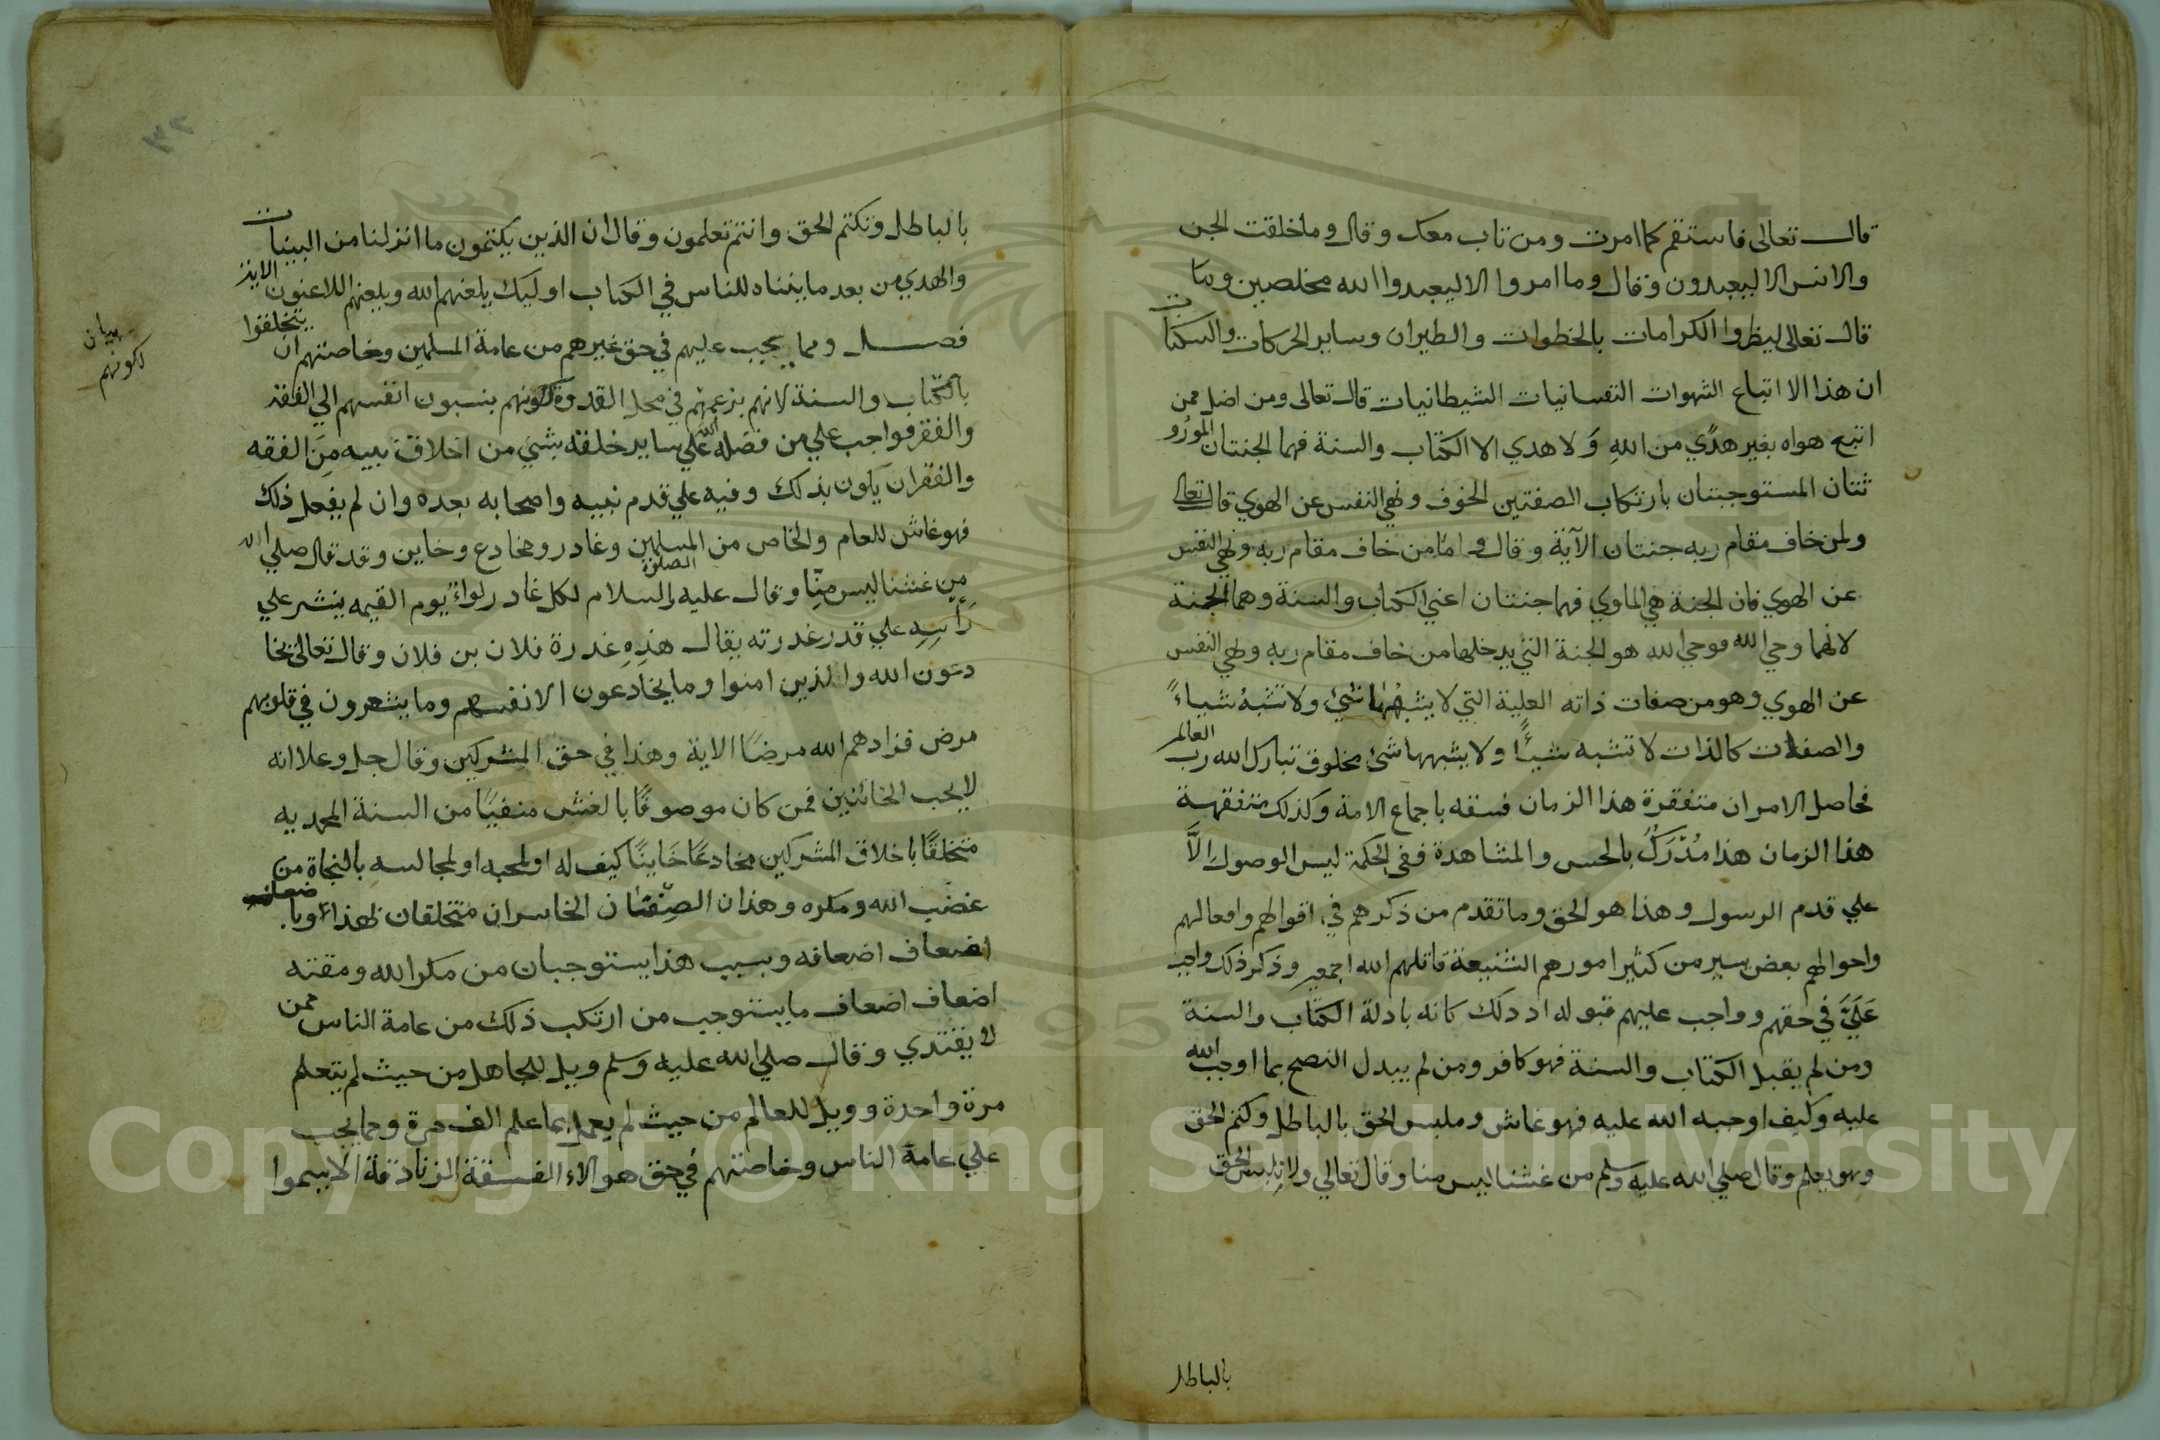 قال تعالى فاستقم كما امرت ومن تاب معك وقال وما خلقت الجن
والانس الا ليعبدون وقال وما امروا الا ليعبدوا الله مخلصين وما
قال تعالى ليظروا الكرامات بالخطوات والطيران وساير الحركات والسكنات
ان هذا الا اتباع الشهوات النفسانيات الشيطانيات قال تعالى ومن اضل ممن
اتبع هواه بغير هدًي من اللهِ وَلا هدي الا الكتاب والسنة فهما الجنتان المورُو
ثتان المستوجبتان بارتكاب الصفتين الخوف ونهي النفس عن الهوي قال تعالى
ولمن خاف مقام ربه جنتان الآية وقال واما من خاف مقام ربه ونهي النفس
عن الهوي فان الجنة هي الماوي فهما جنتان اعني الكتاب والسنة وهما الجنة
لانهما وحي الله فوحي الله هو الجنة التي يدخلها من خاف مقام ربه ونهي النفس
عن الهوي وهو من صفات ذاته العلية التي لا يشبهُها شئ ولا تشبهُ شياءً
والصفات كالذات لا تشبه شيئًا ولا يشبهها شئ مخلوق تبارك الله رب العالم
فحاصل الامر ان متفقرة هذا الزمان فسقه باجماع الامة وكذلك متفقهة
هذا الزمان هذا مُدْرَكٌ بالحس والمشاهدة ففي الحكمة ليس الوصول الَّا
علي قدم الرسول وهذا هو الحق وما تقدم من ذكرهم في اقوالهم وافعالهم
واحوالهم بعض سير من كثير امورهم الشنيعة قاتلهم الله اجمعين وذكر ذلك واجب
عَلَيَّ في حقهم وواجب عليهم قبوله اد دلك كانه بادلة الكتاب والسنة
ومن لم يقبل الكتاب والسنة فهو كافر ومن لم يبدل النصح بما اوجب الله
عليه وكيف اوحبه الله عليه فهو غاش وملبس الحق بالباطل وكتم الحق
وهو يعلم وقال صلي الله عليه وسلم من غشنا ليس منا وقال تعالي ولا تلبس الحق
بالباطل
بالباطل وتكتم الحق وانتم تعلمون وقال ان الذين يكتمون ما انزلنا من البينات
والهدي من بعد ما بيناه للناس في الكتاب اوليك يلعنهم الله ويلعنهم اللاعنون الاية
فصل ومما يجب عليهم في حق غيرهم من عامة المسلمين وخاصتهم ان يتخلقوا
بالكتاب والسنة لانهم بزعمهم في محل القدوة لكونهم ينسبون انفسهم الي الفقه
بيان
لكونهم
والفقر فواجب علي من فضله الله علي ساير خلقه بشي من اخلاق نبيه مِنَ الفقه
والفقر ان يكون بذلك وفيه علي قدم نبيه واصحابه بعده وان لم يفعل ذلك
فهو غاش للعام والخاص من المسلمين وغادر ومخادع وخاين وقد قال صلي الله
من غشنا ليس منّا وقال عليه الصلوة والسلام لكل غادر لواءٌ يوم القيمه ينشر علي
رَاسِهِ علي قدر غدرته يقال هذِهِ غدرة فلان بن فلان وقال تعالى يخا
دعون الله والذين امنوا وما يخادعون الا انفسهم وما يشعرون في قلوبهم
مرض فزادهم الله مرضًا الاية وهذا في حق المشركين وقال جل وعلا انه
لا يحب الخائنين فمن كان موصوفًا بالغش منفيًا من السنة المحمديه
متخلقًا باخلاق المشركين مخادعًا خَاينًا كيف له او لمحبه او لمجالسه بالنجاة من
غضب الله ومكره وهذان الصنفان الخاسران متخلقان بهذا وبا ضعاف
اضعاف اضعافه وبسبب هذا يستوجبان من مكر الله ومقته
اضعاف اضعاف ما يستوجب من ارتكب ذلك من عامة الناس ممن
لا يقتدي وقال صلي الله عليه وسلم ويل للجاهل من حيث لم يتعلم
مرة واحدة وويل للعالم من حيث لم يعمل بما علم الف مرة ومما يجب
علي عامة الناس وخاصتهم في حق هوالاء الفسقة الزنادقة الا يسموا
Copyright © King Saud University